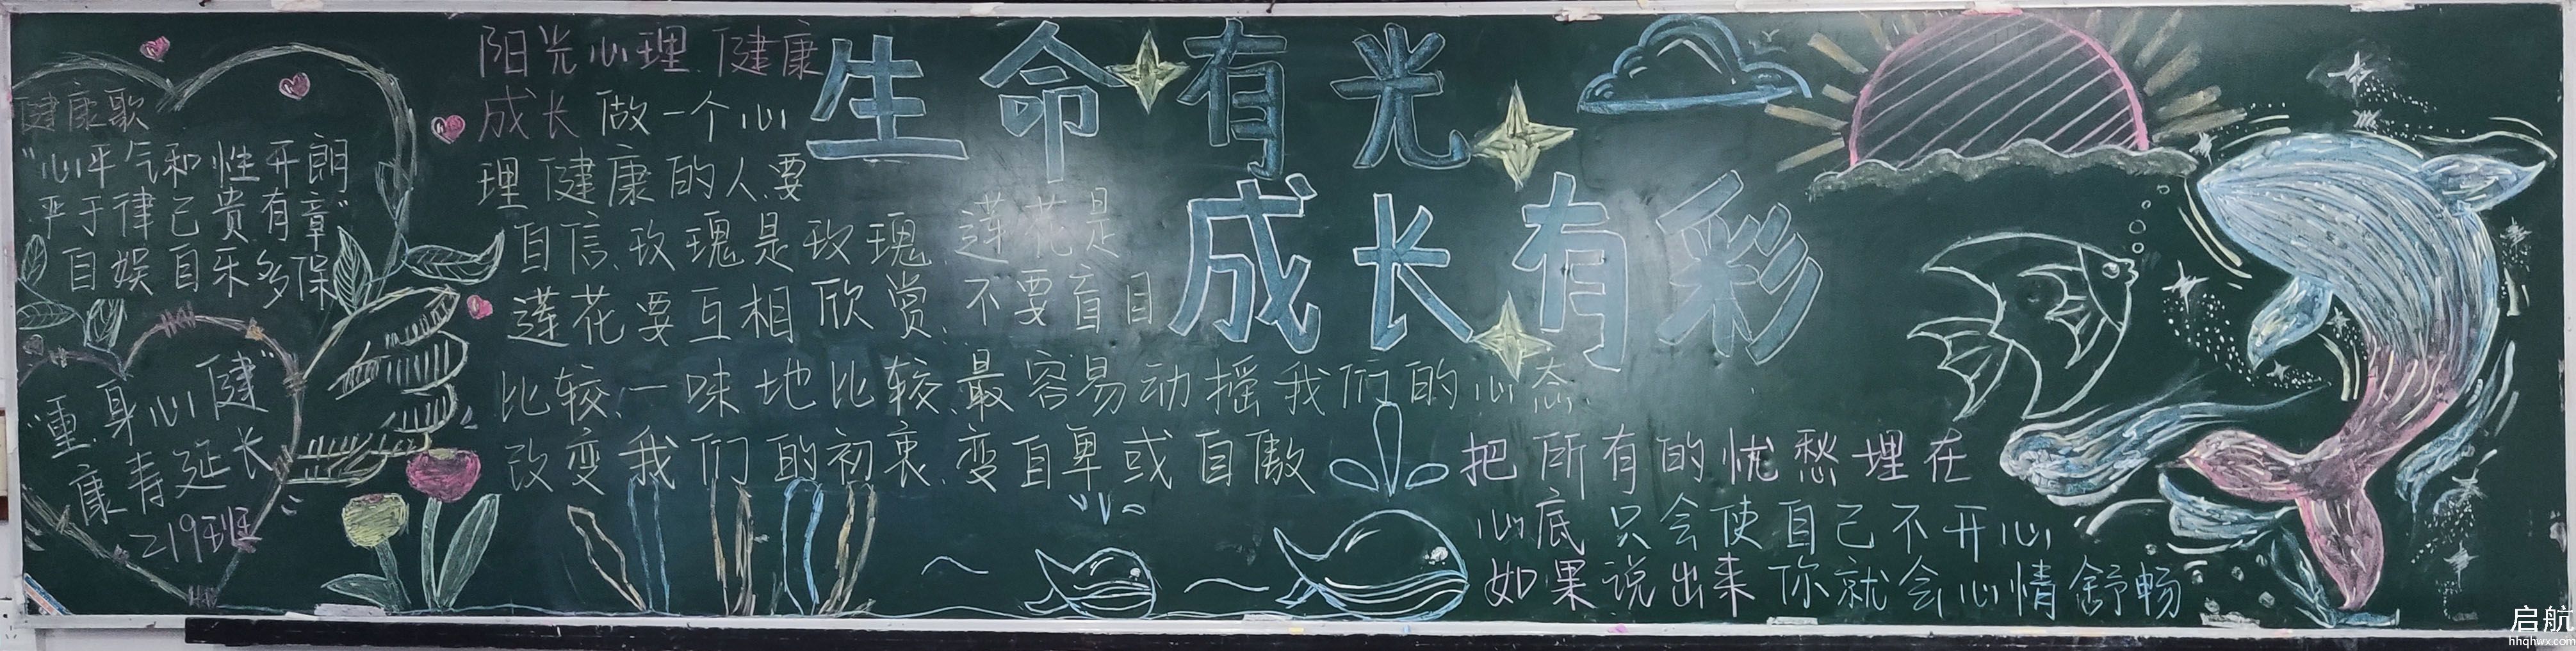 健康歌
"心平气和性开朗
严于律己贵有章"
自娱自乐多保
"重身心健"
康寿延长
219班
阳光心理 健康
成长 做一个心
理健康的人要
自信,玫瑰是玫瑰 莲花是
莲花要互相欣赏,不要盲目
比较,一味地比较,最容易动摇我们的心态,
改变我们的初衷,变自卑或自傲
生命有光
成长有彩
把所有的忧愁埋在
心底只会使自己不开心
如果说出来你就会心情舒畅
启航
hhqhwx.com